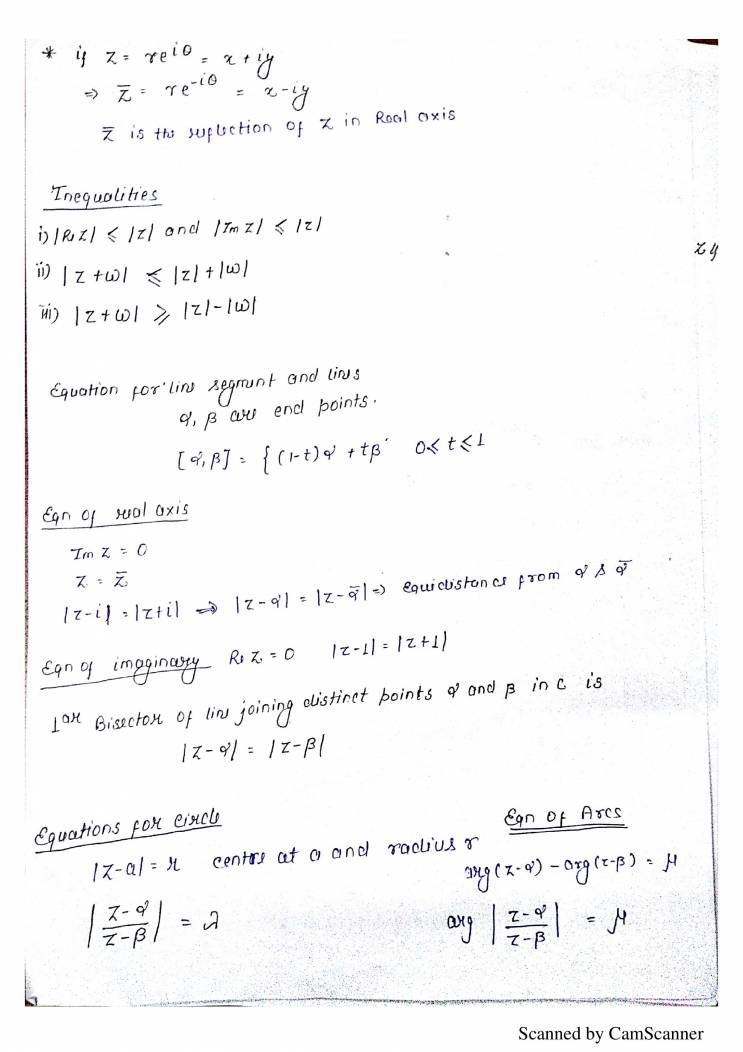 * if z = re^iθ = x + iy
⇒ z̄ = re^-iθ = x - iy
z̄ is the reflection of z in Real axis
Inequalities
i) |Re z| ≤ |z| and |Im z| ≤ |z|
ii) |z + ω| ≤ |z| + |ω|
iii) |z + ω| ≥ |z| - |ω|
Equation for line segment and lines
α, β are end points.
[α, β] = { (1-t)α + tβ 0 ≤ t ≤ 1
Eqn of real axis
Im z = 0
z = z̄
|z-i| = |z+i| ⇒ |z-α| = |z-ᾱ| ⇒ equidistance from α & ᾱ
Eqn of imaginary Re z = 0 |z-1| = |z+1|
⊥ar Bisector of line joining distinct points α and β in C is
|z-α| = |z-β|
Equations for circle
|z-a| = r centre at a and radius r
|z-α / z-β| = λ
Eqn of Arcs
arg(z-α) - arg(z-β) = μ
arg |z-α / z-β| = μ
Scanned by CamScanner